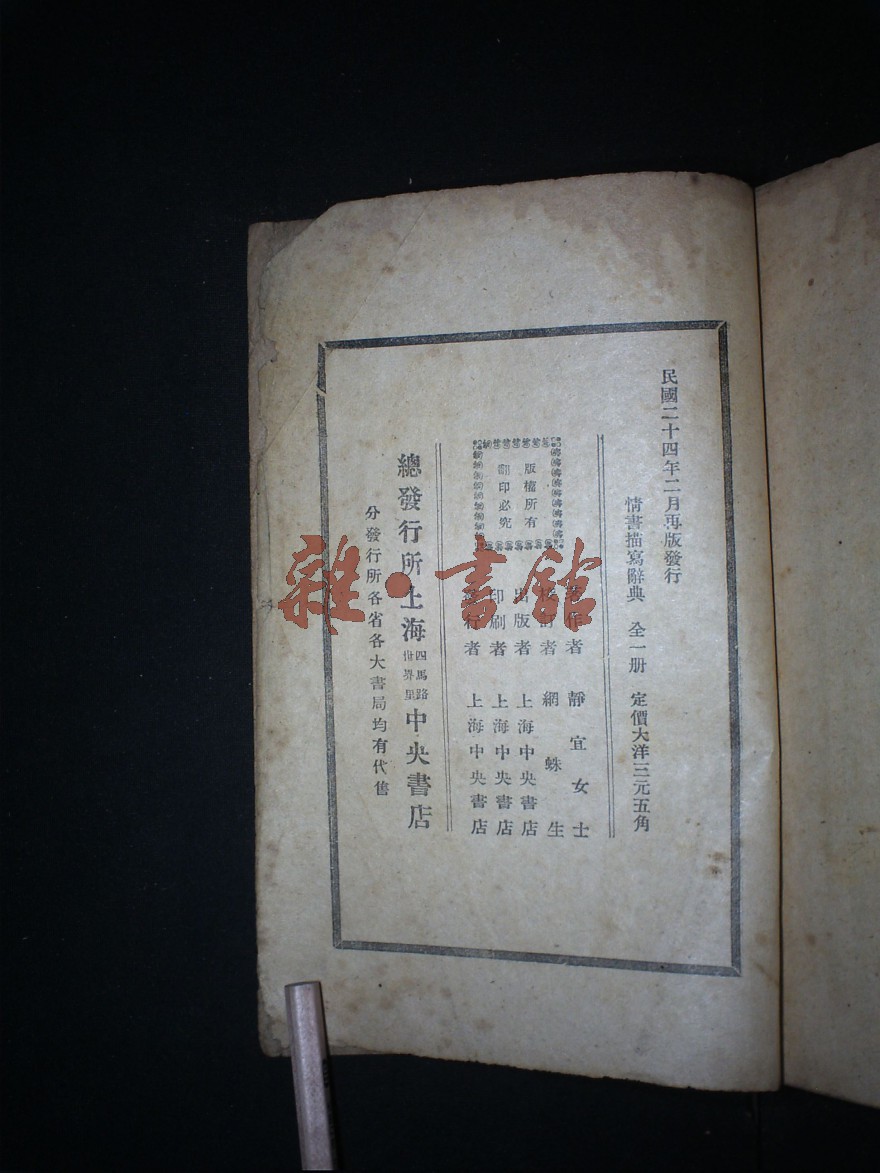 民國二十四年二月再版發行
情書描寫辭典 全一册 定價大洋三元五角
版權所有
翻印必究
著作者 靜宜女士
校訂者 網蛛生
出版者 上海中央書店
印刷者 上海中央書店
發行者 上海中央書店
總發行所上海四馬路世界里中央書店
分發行所各省各大書局均有代售
雜·書館